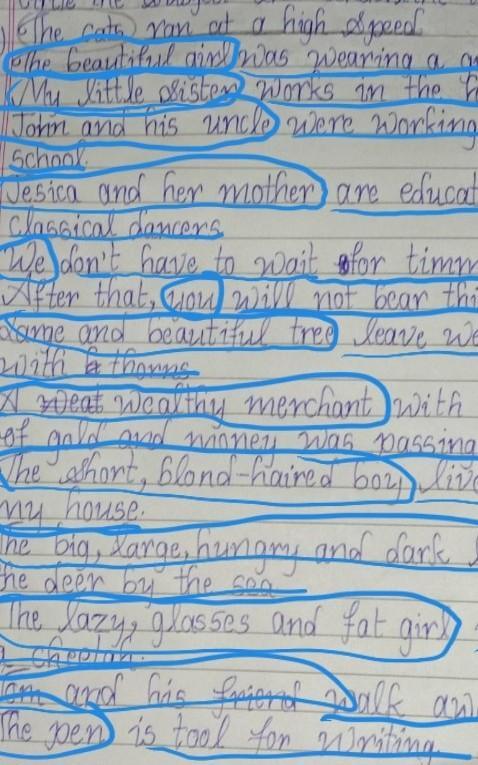 The cats ran at a high speed
The beautiful girl was wearing a
My little sister works in the
John and his uncle were working
school.
Jesica and her mother are educat
classical dancers
We don't have to wait for timm
After that, you will not bear thi
Same and beautiful tree leave we
with thorns
A wealthy merchant with
of gold and money was passing
The short, blond-haired boy live
my house.
The big, large, hungry and dark
the deer by the sea
The lazy, glasses and fat girl
a cheetah.
Tom and his friend walk aw
The pen is tool for writing.